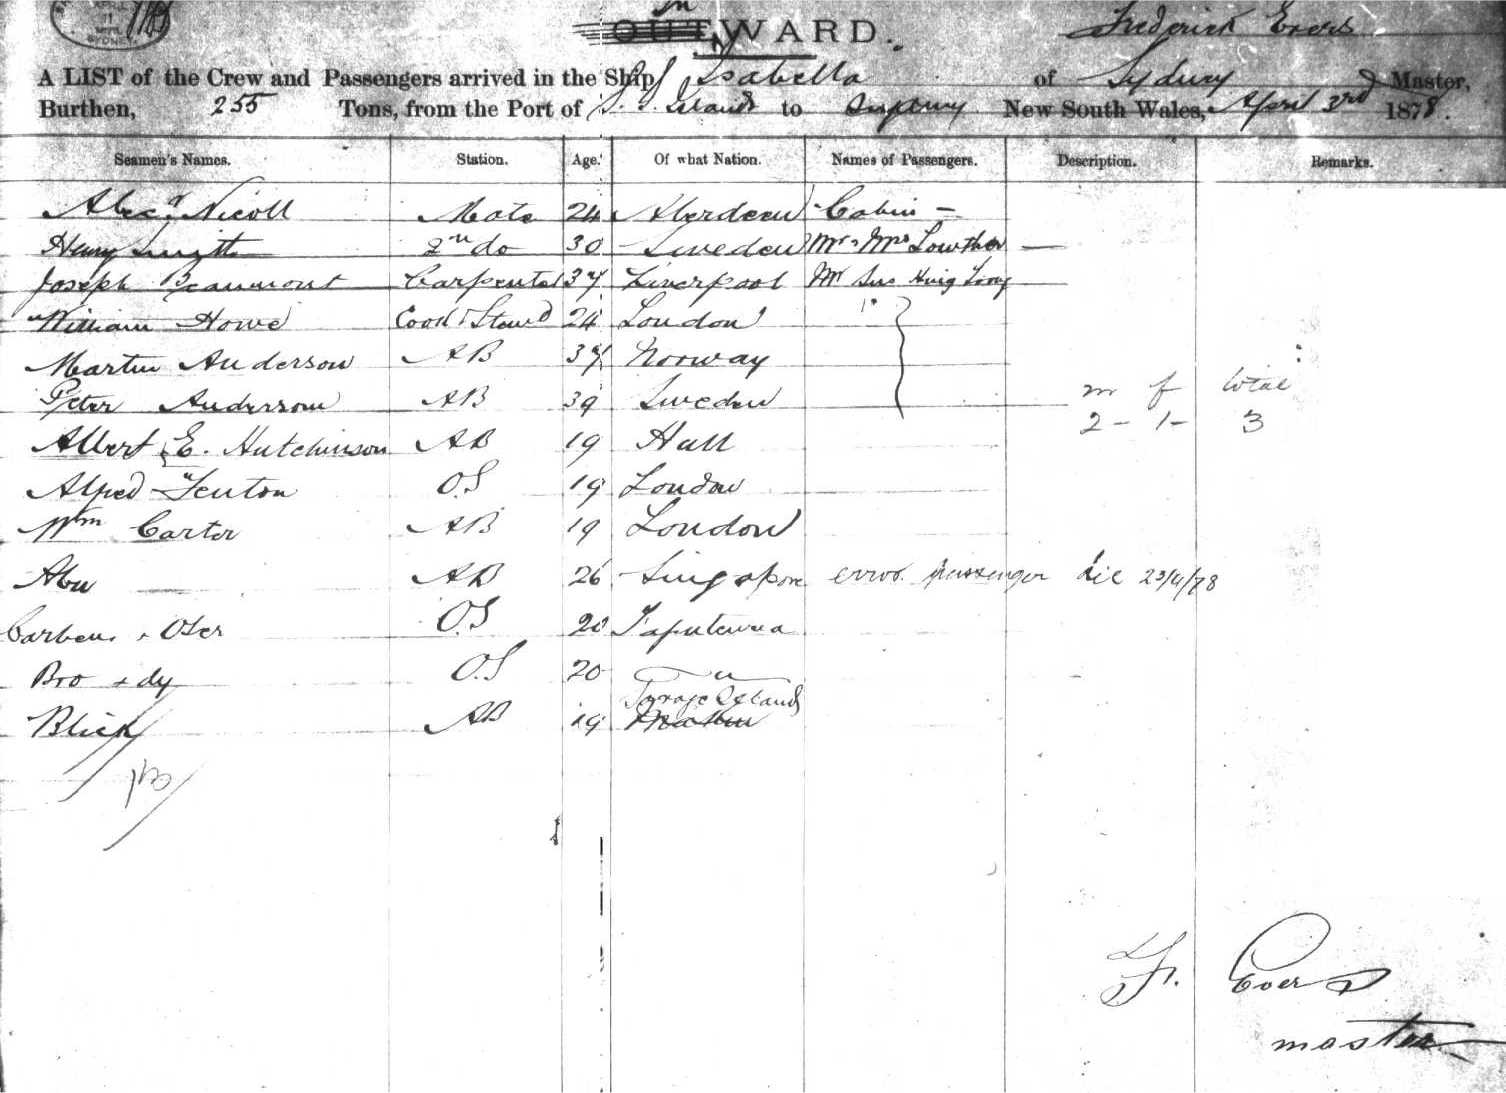 In
OUTWARD.
Frederick Evers
SYDNEY
A LIST of the Crew and Passengers arrived in the Ship Isabella of Sydney Master,
Burthen, 255 Tons, from the Port of S. S. Islands to Sydney New South Wales, April 3rd 1878.
Seamen's Names. Station. Age. Of what Nation. Names of Passengers. Description. Remarks.
Alexr. Nicoll Mate 24 Aberdeen Cabin —
Henry Smith 2nd do 30 Sweden Mr. Mrs Lowther —
Joseph Beaumont Carpenter 37 Liverpool Mr
William Howe Cook & Stewd 24 London
Martin Anderson AB 37 Norway
Peter Anderson AB 39 Sweden
m f total
Albert E. Hutchinson AB 19 Hull 2 - 1 - 3
Alfred Fenton O.S 19 London
Wm Carter AB 19 London
Abu AB 26 Singapore error passenger 23/4/78
O.S 20 Taputewea
Bro + dy O.S 20 "
Islands
Blick AB 19
Fr. Evers
master